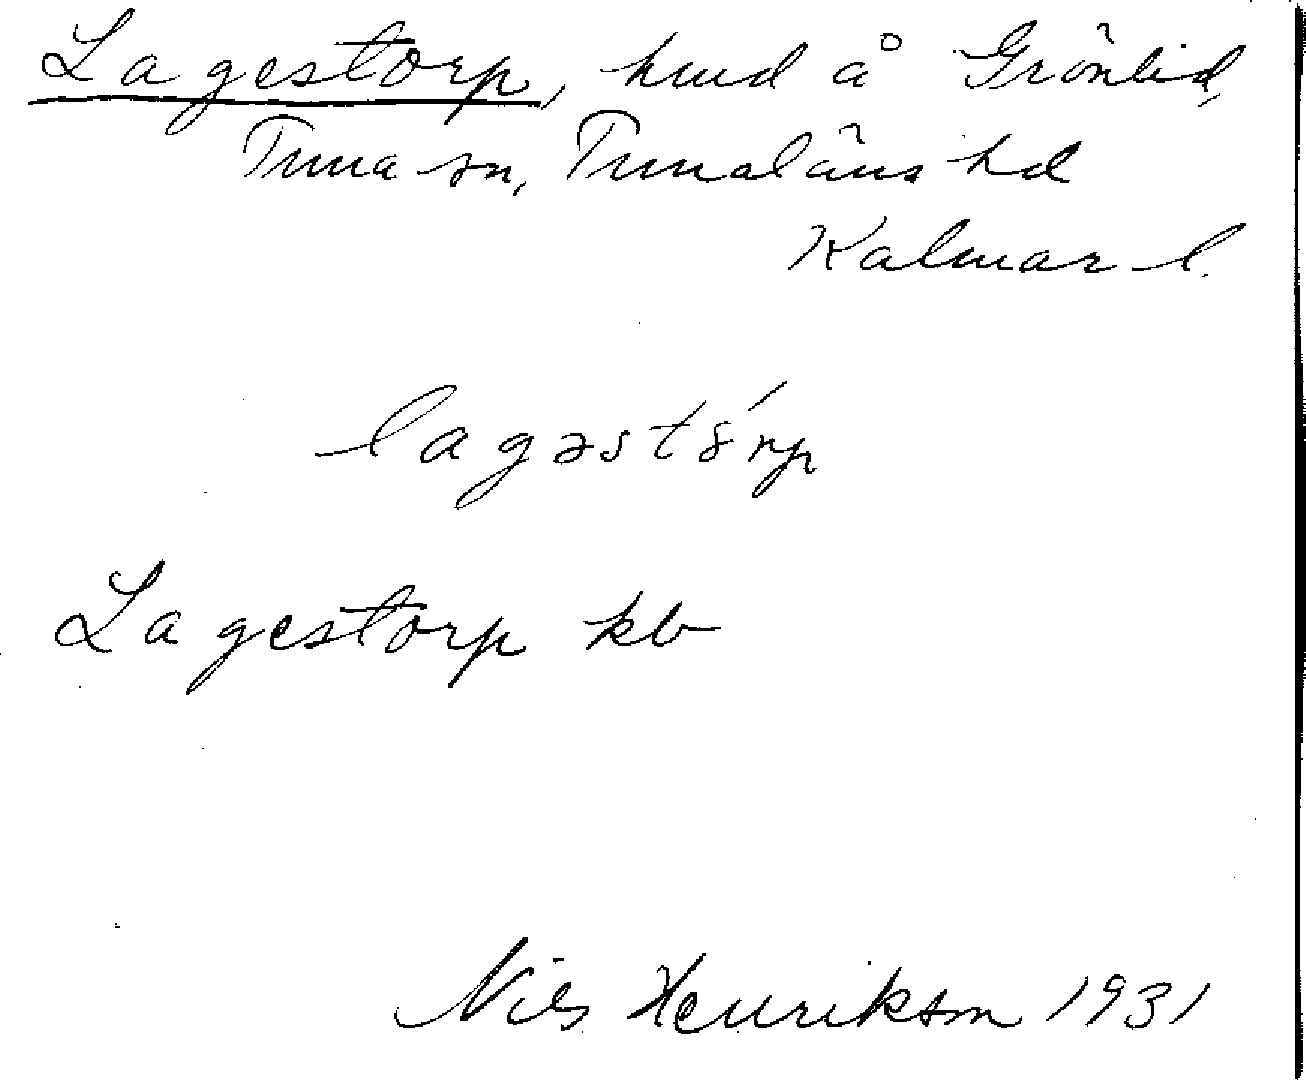 Lagestorp, hmd å Grönlid,
Tuna sn, Tunaläns hd
Kalmar l.
lagəstó̤rp
Lagestorp kb
Nils Henrikson 1931